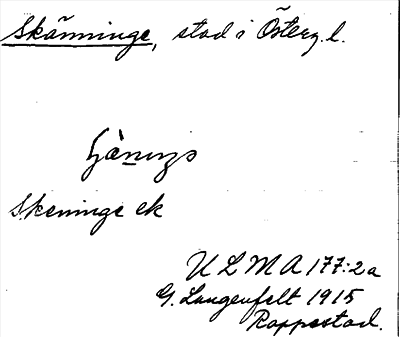 Skänninge, stad i Österg.l.
Skeninge ek
ULMA 177:2a
G. Langenfelt 1915
Rappestad.